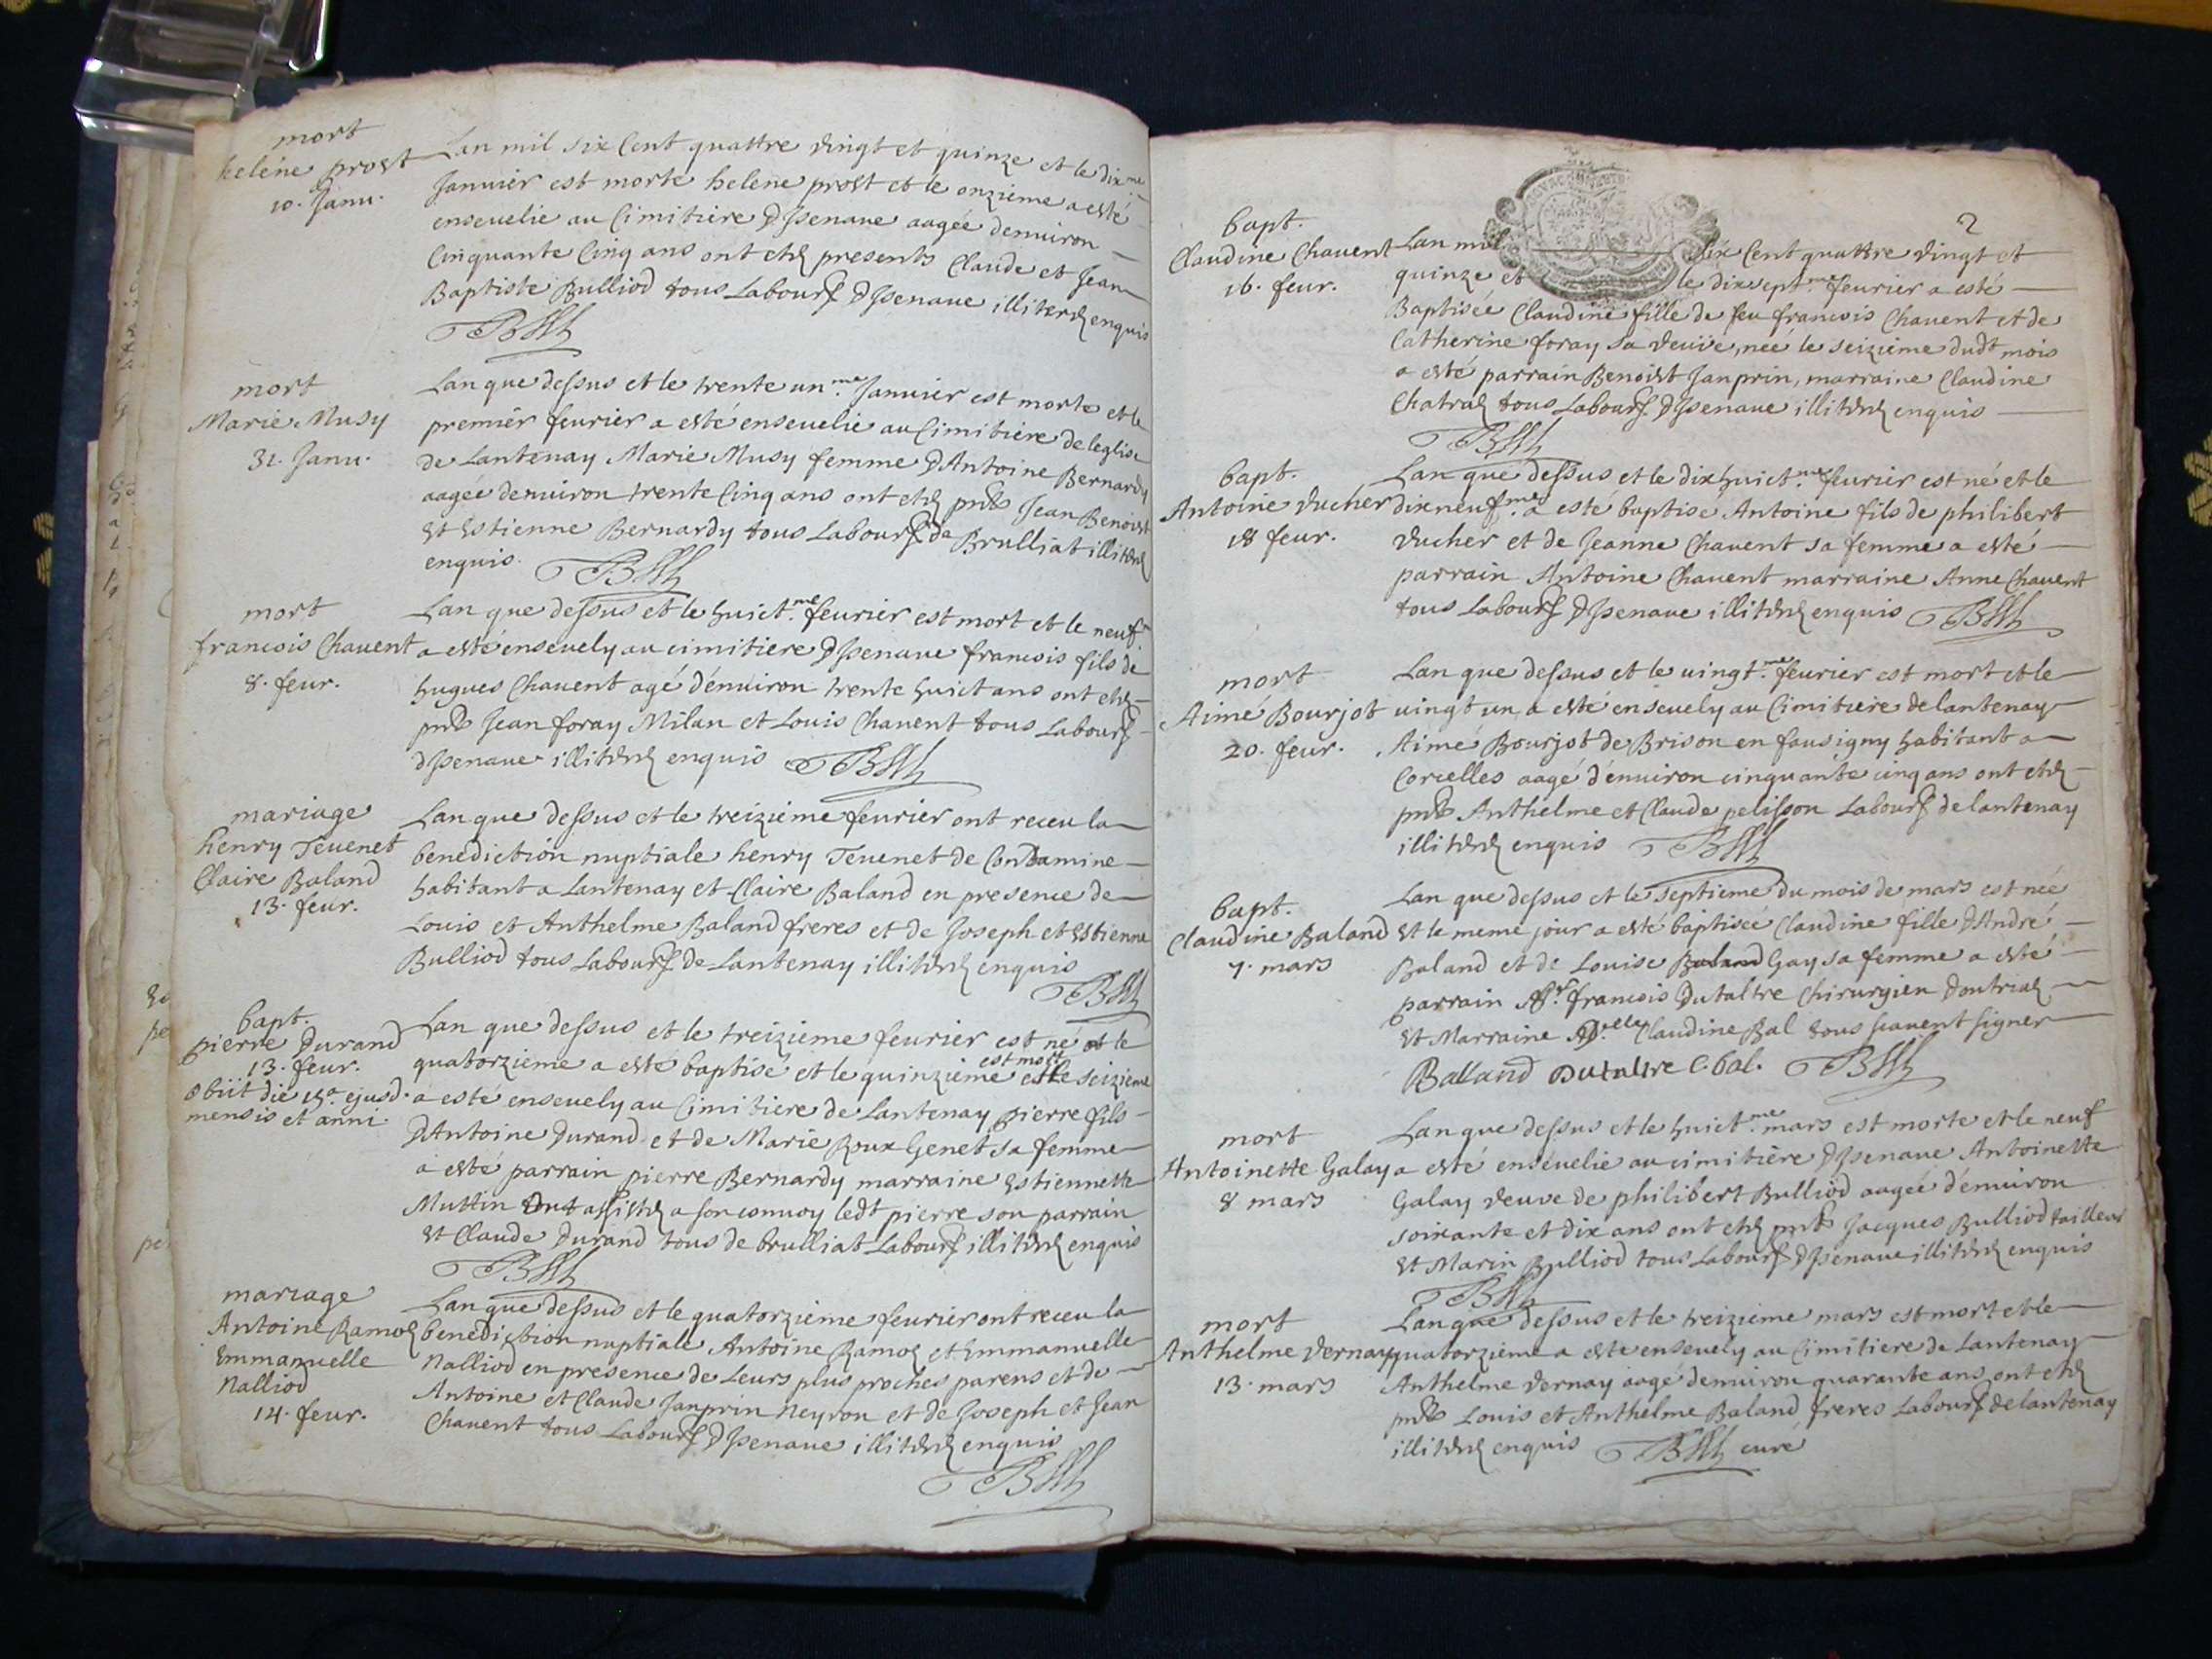 mort
helene prost
10. Janu.
Lan mil six Cent quattre vingt et quinze et le dixme
Januier est morte helene prost et le onzieme a esté
enseuelie au Cimitiere d'Jsenaue aagée denuiron
Cinquante Cinq ans ont etez presents Claude et Jean
Baptiste Bulliod tous Labours d'Jsenaue illiterez enquis
mort
Marie Musy
31. Janu.
Lan que dessus et le trente un.me Januier est morte et le
premier feurier a esté enseuelie au Cimitiere de leglise
de Lantenay Marie Musy femme d'Antoine Bernardy
aagée denuiron trente Cinq ans ont etez pnts Jean Benoist
Et Estienne Bernardy tous Labours de Brulliat illitérez
enquis.
mort
francois Chauent
8. feur.
Lan que dessus et le huict.me feurier est mort et le neuf
a esté enseuely au cimitiere d'Jsenaue francois fils de
hugues Chauent agé d'enuiron trente huict ans ont etez
pnts Jean foray Milan et Louis Chauent tous Labours
d'Jsenaue illitérez enquis
mariage
henry Teuenet
Claire Baland
13. feur.
Lan que dessus et le treizieme feurier ont receu la
benediction nuptiale henry Teuenet de Condamine
habitant a Lantenay et Claire Baland en presence de
Louis et Anthelme Baland freres et de Joseph et Estienne
Bulliod tous Labours de Lantenay illitérez enquis
bapt.
pierre Durand
13. feur.
obiit die 15.a ejusd.
mensis et anni
Lan que dessus et le treizieme feurier est né et le
quatorzieme a esté baptisé et le quinzieme est mort et le seizieme
a esté enseuely au Cimitiere de Lantenay pierre fils
d'Antoine Durand et de Marie Roux Genet sa femme
a esté parrain pierre Bernardy marraine Estiennette
Muttin Ont assistez a son conuoy ledt pierre son parrain
Et Claude Durand tous de brulliat Labours illitérez enquis
mariage
Antoine Ramoz
Emmanuelle
Nalliod
14. feur.
Lan que dessus et le quatorzieme feurier ont receu la
benediction nuptiale Antoine Ramoz et Emmanuelle
Nalliod en presence de Leurs plus proches parens et de
Antoine et Claude Janprin Neyron et de Joseph et Jean
Chauent tous Labours d'Jsenaue illitérez enquis
2
bapt.
Claudine Chauent
16. feur.
Lan mil six Cent quattre vingt et
quinze et le dixsept.me feurier a esté
Baptisée Claudine fille de feu francois Chauent et de
Catherine foray sa veuve, née le seizieme dudt mois
a esté parrain Benoist Janprin, marraine Claudine
Chatraz tous Labours d'Jsenaue illitérez enquis
bapt.
Antoine Vucher
18 feur.
Lan que dessus et le dixhuict.me feurier est né et le
dixneuf.me a esté baptisé Antoine fils de philibert
Vucher et de Jeanne Chauent sa femme a esté
parrain Antoine Chauent marraine Anne Chauent
tous Labours d'Jsenaue illitérez enquis
mort
Aimé Bourjot
20. feur.
Lan que dessus et le uingt.me feurier est mort et le
uingt un a esté enseuely au Cimitiere de lantenay
Aimé Bourjot de Brison en fausigny habitant a
Corcelles aagé d'enuiron cinquante cinq ans ont etez
pnts Anthelme et Claude pelisson Labours de lantenay
illitérez enquis
bapt.
Claudine Baland
7. mars
Lan que dessus et le septieme du mois de mars est née
Et le meme jour a esté baptisée Claudine fille d'André
Baland et de Louise Baland Gay sa femme a esté
parrain Sr. francois Dutaltre Chirurgien doutriaz
Et Marraine D.elle Claudine Bal tous scauent signer
Balland Dutaltre C. bal.
mort
Antoinette Galay
8 mars
Lan que dessus et le huict.me mars est morte et le neuf
a esté enséuelie au cimitière d'Jsenaue Antoinette
Galay veuve de philibert Bulliod aagée d'enuiron
soixante et dix ans ont etez pnts Jacques Bulliod tailleur
Et Marin Bulliod tous Labours d'Jsenaue illitérez enquis
mort
Anthelme Vernay
13. mars
Lan que dessus et le treizieme mars est mort et le
quatorzieme a esté enseuely au Cimitiere de Lantenay
Anthelme Vernay aagé denuiron quarante ans ont etez
pnts Louis et Anthelme Baland freres Labours de lantenay
illitérez enquis curé